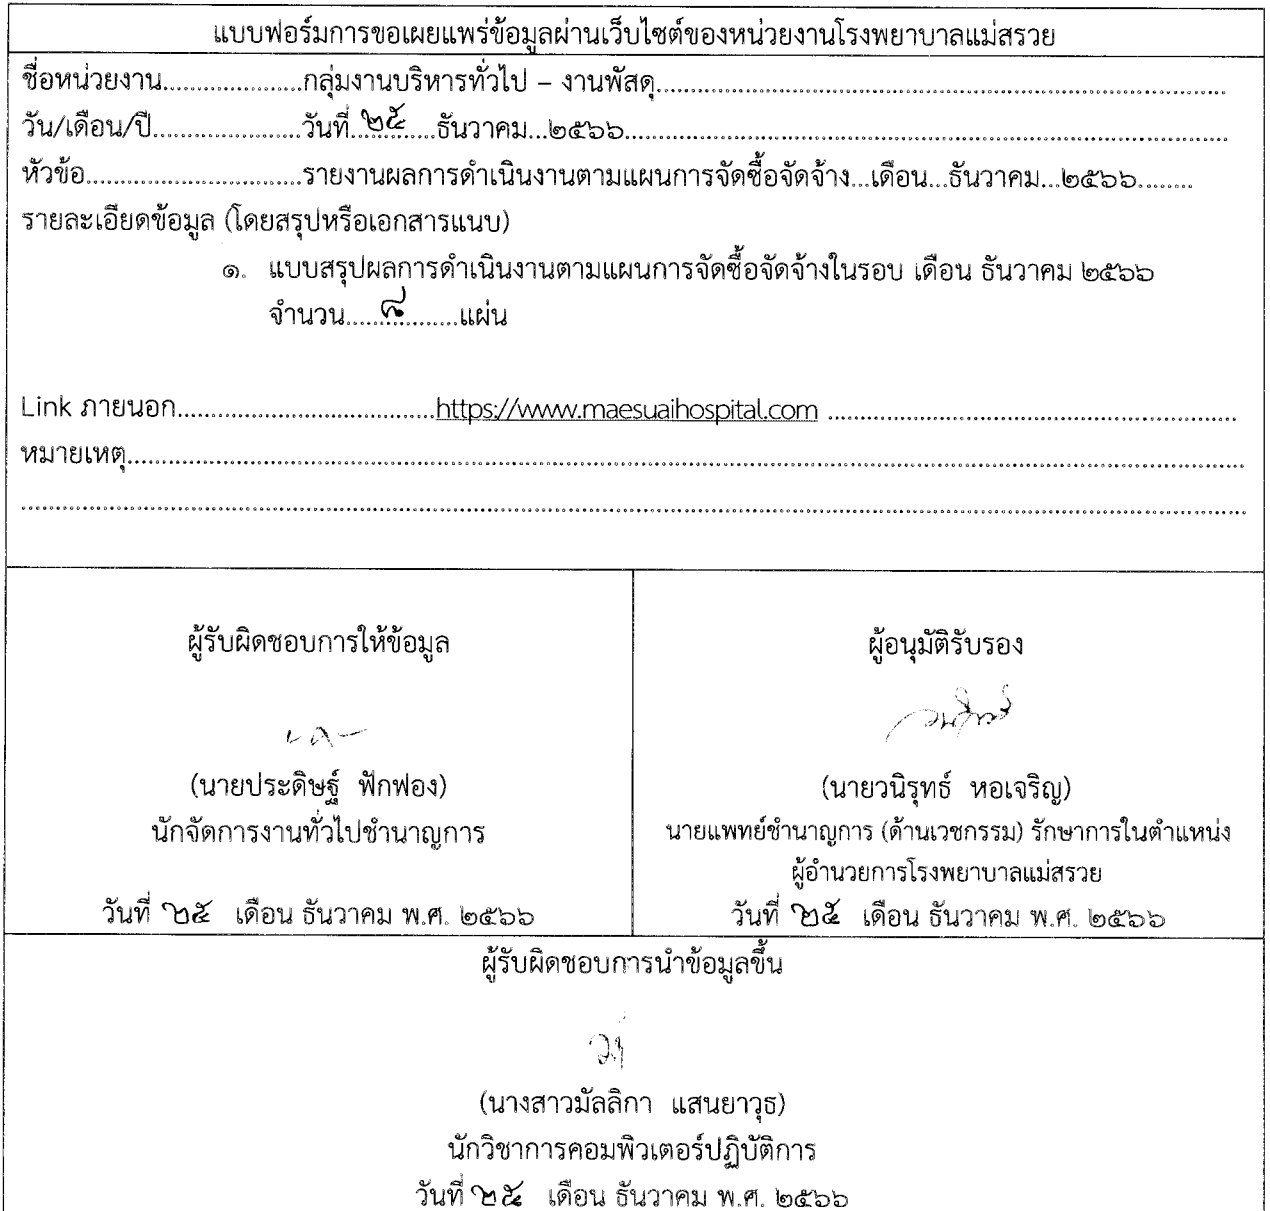 แบบฟอร์มการขอเผยแพร่ข้อมูลผ่านเว็บไซต์ของหน่วยงานโรงพยาบาลแม่สรวย
ชื่อหน่วยงาน.....................กลุ่มงานบริหารทั่วไป – งานพัสดุ.....................
วัน/เดือน/ปี......................วันที่..๒๕....ธันวาคม...๒๕๖๖.....................
หัวข้อ................................รายงานผลการดำเนินงานตามแผนการจัดซื้อจัดจ้าง...เดือน...ธันวาคม...๒๕๖๖........
รายละเอียดข้อมูล (โดยสรุปหรือเอกสารแนบ)
๑. แบบสรุปผลการดำเนินงานตามแผนการจัดซื้อจัดจ้างในรอบ เดือน ธันวาคม ๒๕๖๖
จำนวน.....๘............แผ่น
Link ภายนอก......................................https://www.maesuaihospital.com .....................
หมายเหตุ.....................
ผู้รับผิดชอบการให้ข้อมูล
(นายประดิษฐ์ ฟักฟอง)
นักจัดการงานทั่วไปชำนาญการ
วันที่ ๒๕ เดือน ธันวาคม พ.ศ. ๒๕๖๖
ผู้อนุมัติรับรอง
(นายวนิรุทธ์ หอเจริญ)
นายแพทย์ชำนาญการ (ด้านเวชกรรม) รักษาการในตำแหน่ง
ผู้อำนวยการโรงพยาบาลแม่สรวย
วันที่ ๒๕ เดือน ธันวาคม พ.ศ. ๒๕๖๖
ผู้รับผิดชอบการนำข้อมูลขึ้น
(นางสาวมัลลิกา แสนยาวุธ)
นักวิชาการคอมพิวเตอร์ปฏิบัติการ
วันที่ ๒๕ เดือน ธันวาคม พ.ศ. ๒๕๖๖